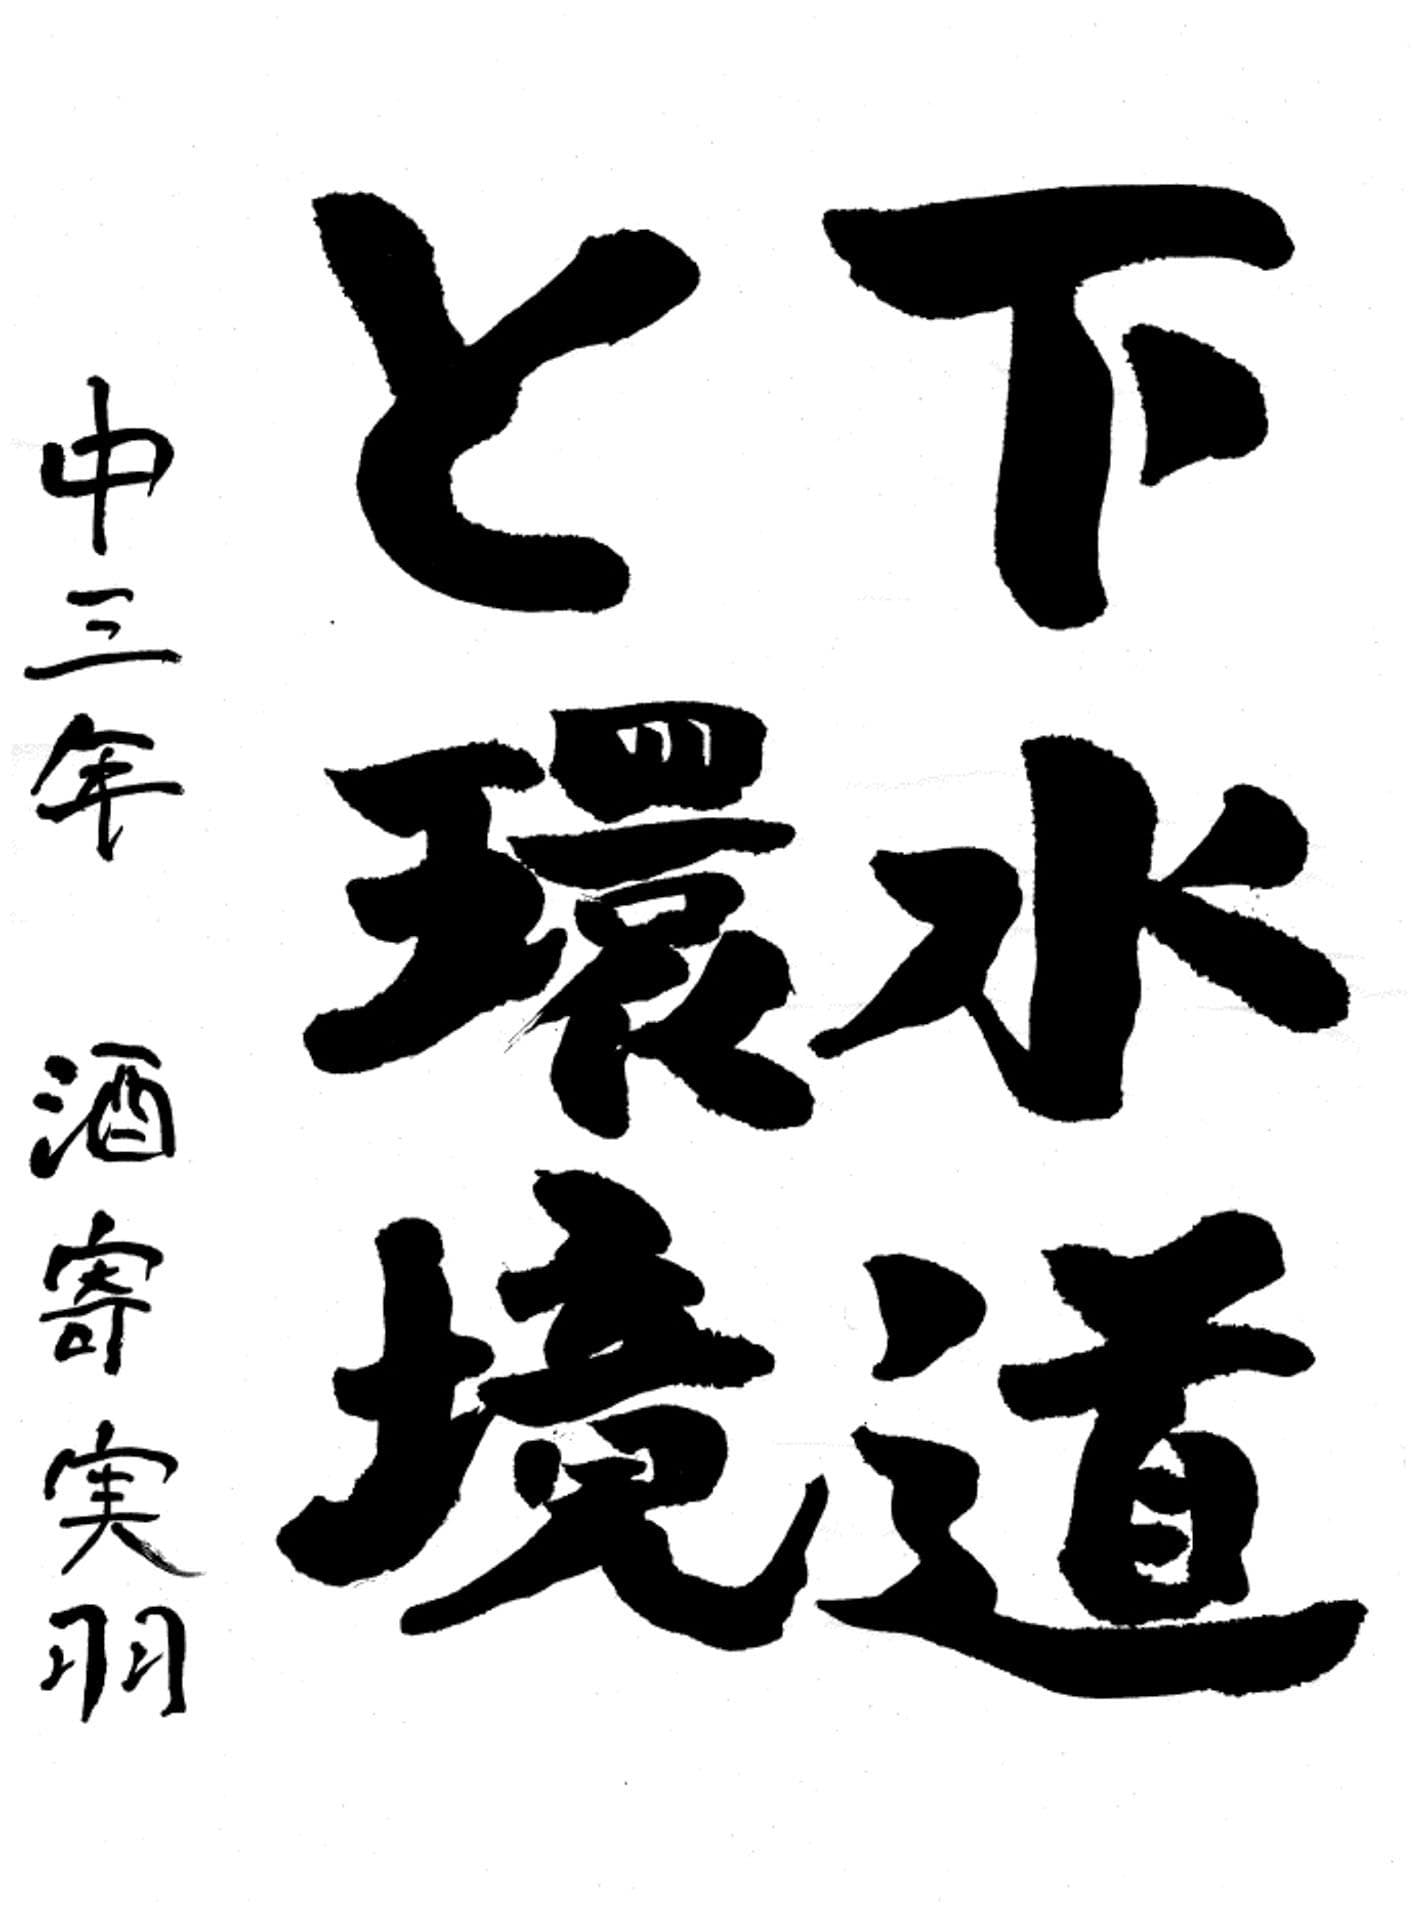 下水道
と環境
中三年 酒寄実羽